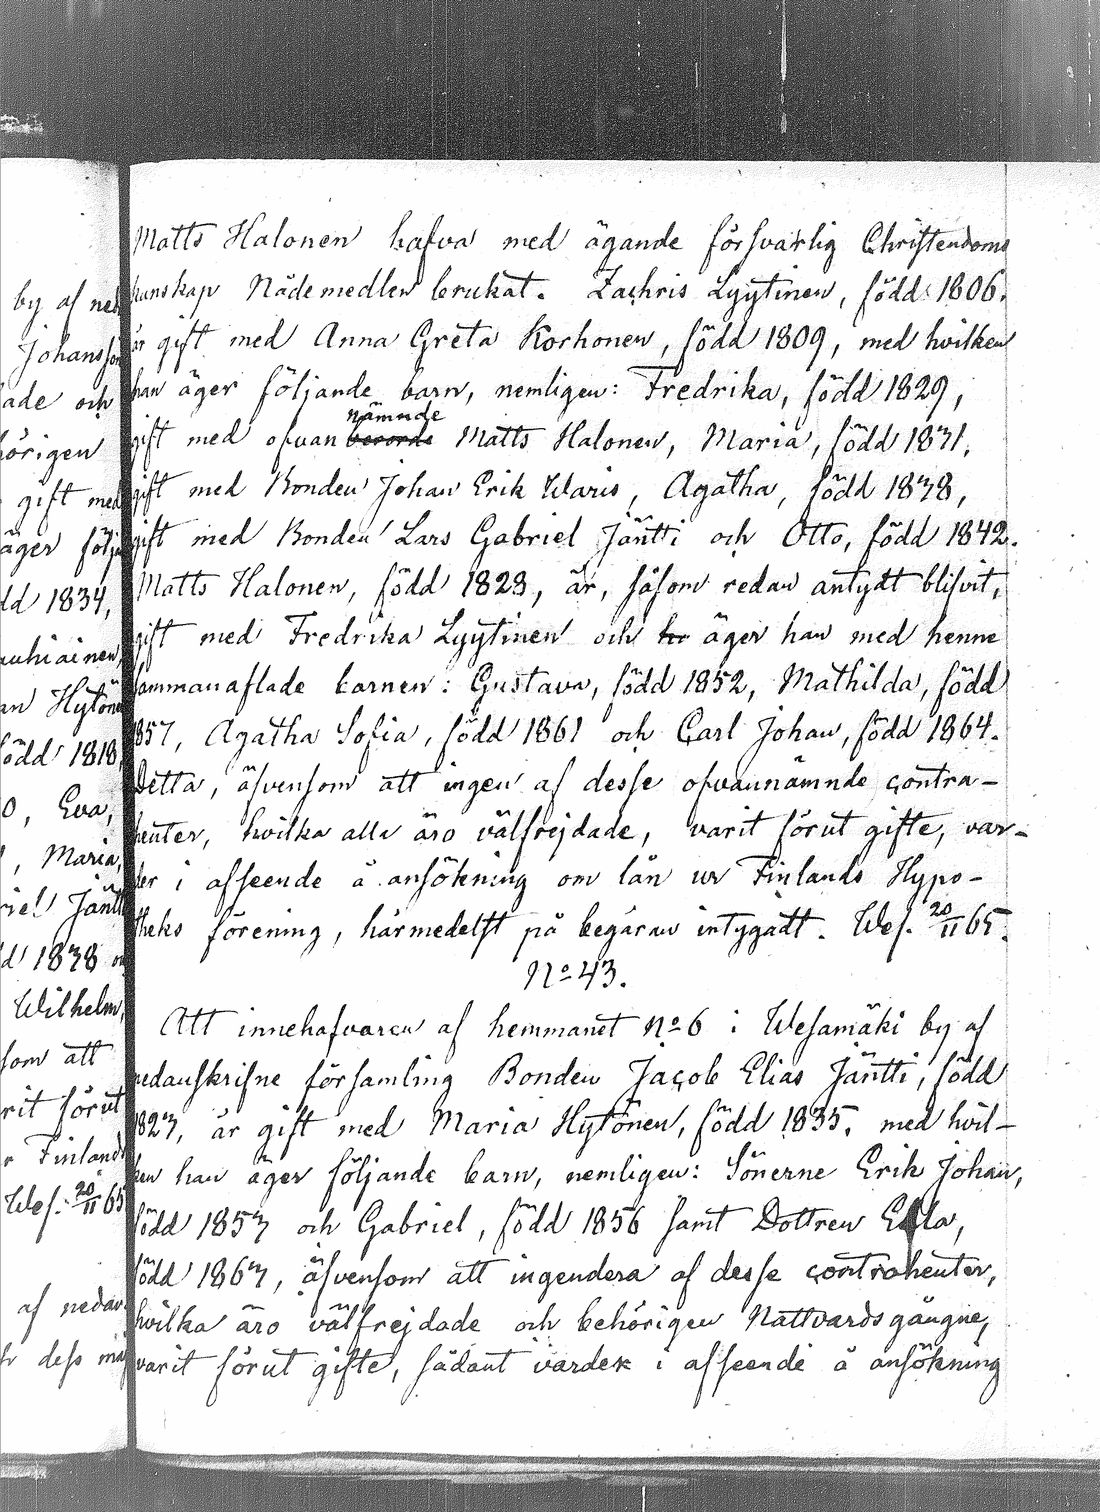 by af ned
Johansson
ade och
hörigen
gift med
äger följ
dd 1834,
auhiainen,
an Hytöne
född 1818
0, Eva,
, Maria,
riel Jänt
d 1838
Wilhelm,
som att
rit förut
r Finland
Wes. 20/II 65
af nedan
dess må
Matts Halonen hafva med ägande försvarlig Christendoms
kunskap Nådemedlen brukat. Zachris Lyytinen, född 1806.
är gift med Anna Greta Korhonen, född 1809, med hvilken
han äger följande barn, nemligen: Fredrika, född 1829,
nämnde
gift med ofvan berörde Matts Halonen, Maria, född 1831.
gift med Bonden Johan Erik Waris, Agatha, född 1838,
gift med Bonden Lars Gabriel Jäntti och Otto, född 1842.
Matts Halonen, född 1823, är, såsom redan antydt blifvit,
gift med Fredrika Lyytinen och har äger han med henne
sammanaflade barnen: Gustava, född 1852, Mathilda, född
1857, Agatha Sofia, född 1861 och Carl Johan, född 1864.
Detta, äfvensom att ingen af desse ofvannämnde contra-
henter, hvilka alla äro välfrejdade, varit förut gifte, var-
der i afseende å ansökning om lån ur Finlands Hypo-
theks förening, härmedelst på begäran intygadt. Wes. 20/II 65.
No 43.
Att innehafvaren af hemmanet No 6 i Wesamäki by af
nedanskrifne församling Bonden Jacob Elias Jäntti, född
1823, är gift med Maria Hytönen, född 1835, med hvil-
ken han äger följande barn, nemligen: Sönerne Erik Johan,
född 1853 och Gabriel, född 1856 samt Dottren Ella,
född 1863, äfvensom att ingendera af desse contrahenter,
hvilka äro välfrejdade och behörigen Nattvardsgångne,
varit förut gifte, sådant varder i afseende å ansökning